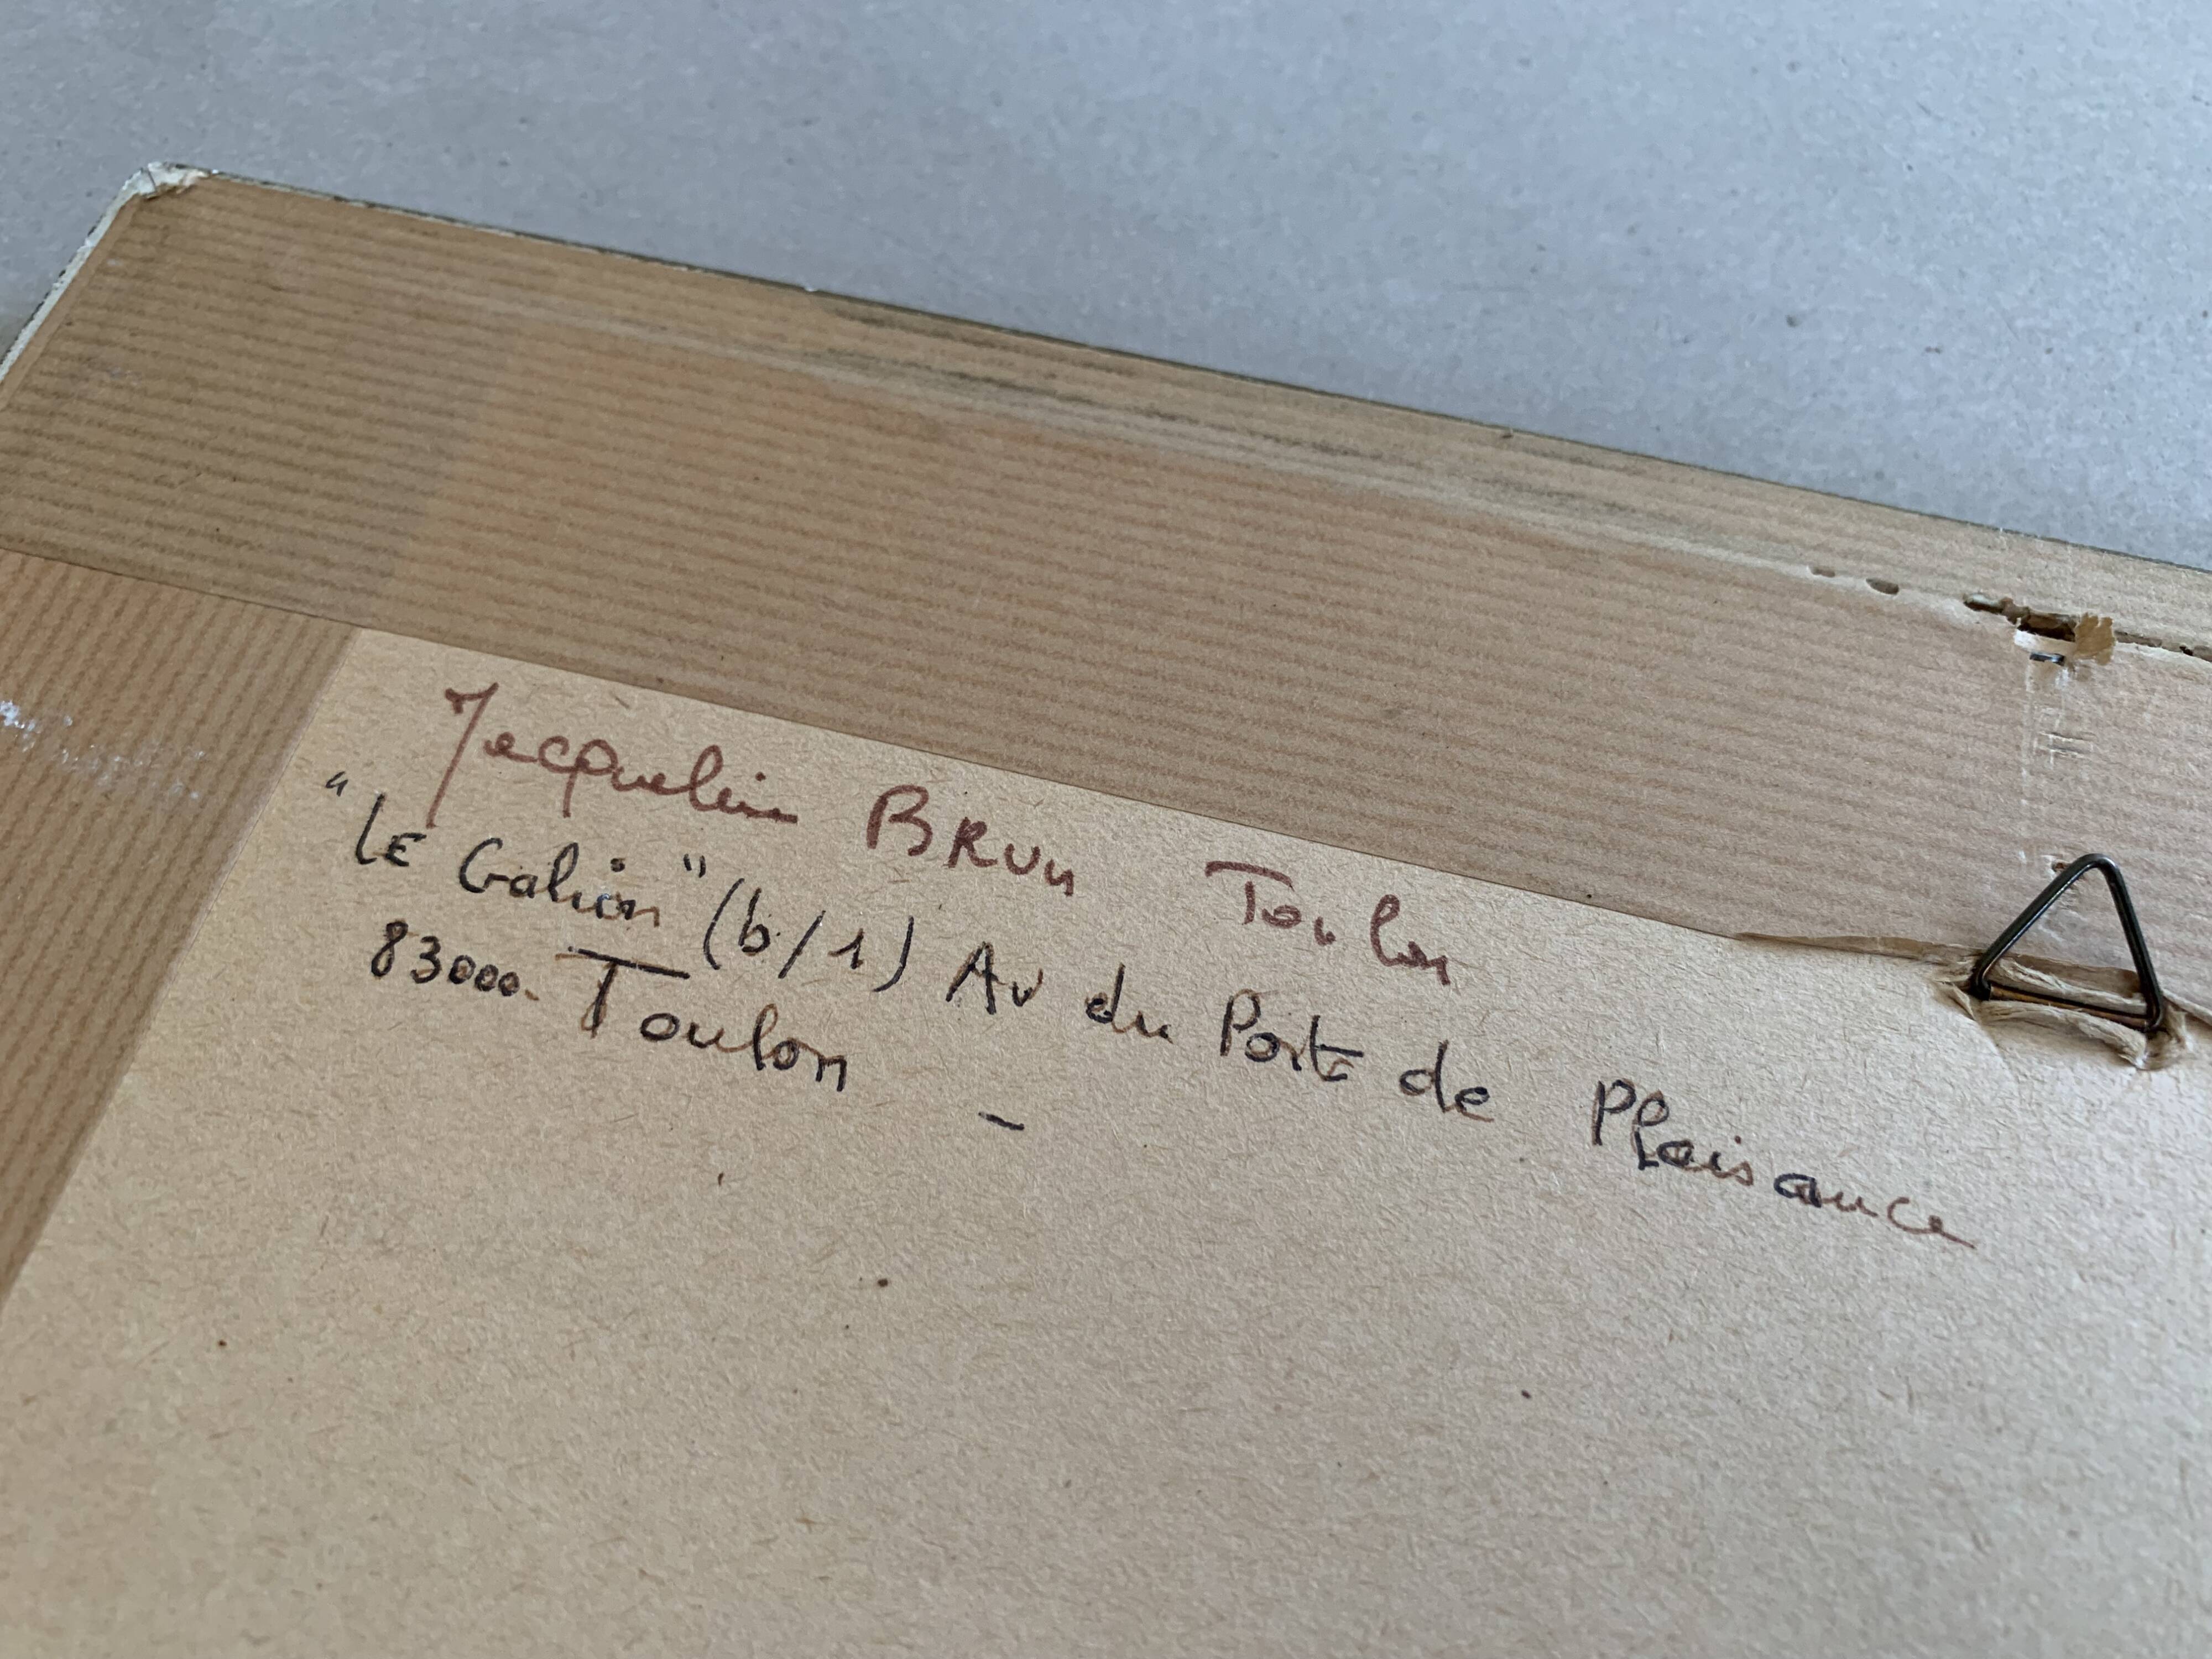 Jacqueline BRUN Toulon
"LE Galion" (b/1) Av du Porte de Plaisance
83000. Toulon -